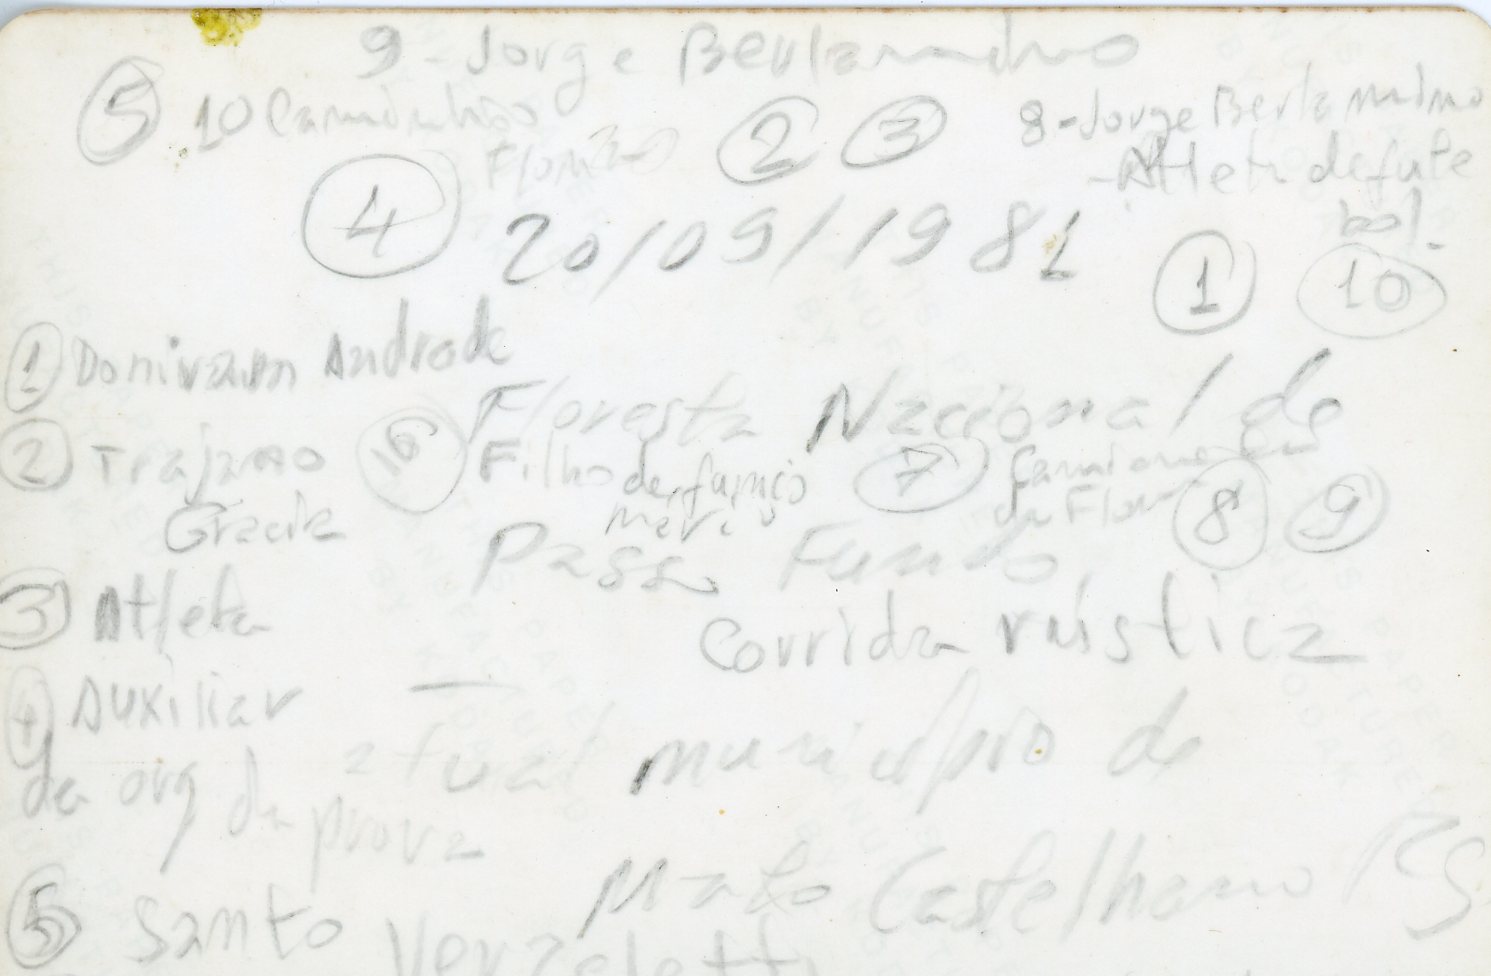 9 - Jorge Berlarmino
5 10 Caminhão 2 3 8 - Jorge Berlarmino
Flona - Atleta de fute
4 bol.
20/09/1981 1 10
1 Donivam Andrade
Floresta Nacional de
2 Trajano 16 Filho de 7
Gracia da Flona 8 9
Passo Fundo
3 Atleta Corrida rústica
4 Auxiliar
da org da prova atual município de
Mato Castelhano RS
5 Santo Verzeletti